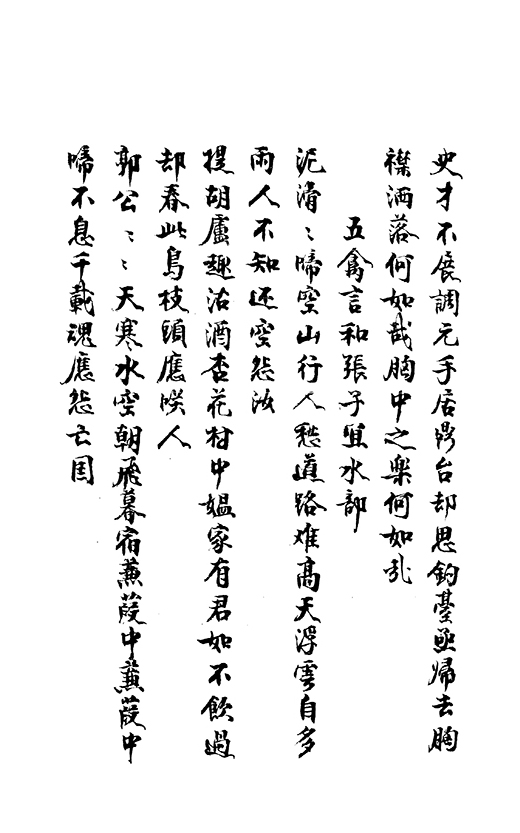 史才不展調元手居鼎台却思釣臺亟歸去胸
襟洒落何如哉胸中之樂何如哉
五禽言和張子宜水部
泥滑〻啼空山行人愁道路難高天浮雲自多
雨人不知还空怨汝
提胡盧趣沽酒杏花村中媪家有君如不飲過
却春此鳥枝頭應唉人
郭公〻〻天寒水空朝飛暮宿蒹葭中蒹葭中
啼不息千載魂應怨亡国